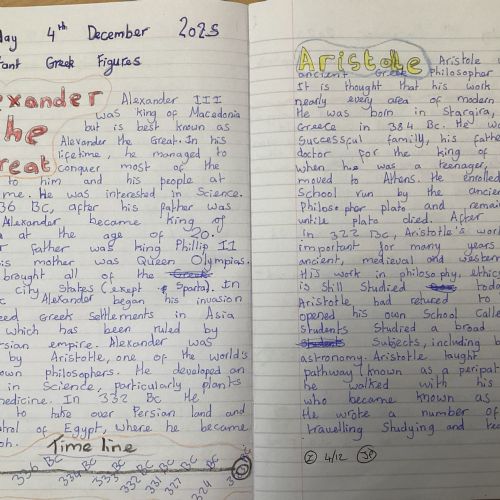 day 4th December 2025
tant Greek Figures
exander
the
Great
Alexander III
was king of Macedonia
but is best known as
Alexander the Great. In his
lifetime, he managed to
conquer most of the
to him and his people at
me. He was interested in Science.
36 BC, after his father was
Alexander became king of
a at the age of 20.
father was king Phillip II
is mother was Queen Olympias.
brought all of the Greek
city States (except Sparta). In
Alexander began his invasion
eed Greek Settlements in Asia
which has been ruled by
rsian empire. Alexander was
by Aristotle, one of the world's
own philosophers. He developed an
in Science, particularly plants
medicine. In 332 BC He
to take over Persian land and
trol of Egypt, where he became
oh.
Time line
336 BC
334 BC
333 BC
332 BC
331 BC
327 BC
324 BC
Aristotle
Aristotle w
ancient Greek Philosopher
It is thought that his work
nearly every area of modern
He was born in Stargira,
Greece in 384 BC. He wa
Successful familly, his father
doctor for the king of
when he was a teenager,
moved to Athens. He enrolled
School run by the ancie
Philosopher plato and remain
untile plato died. After
in 322 BC, Aristotle's work
important for many years
ancient, medieval and western
His work in philosophy, ethics
is Still Studied toda
Aristotle had retured to
opened his own School Calle
Students Studied a broad
Students Subjects, including b
astronomy. Aristotle taught
pathway (known as a peripat
he walked with his
who became known as
He wrote a number of
travelling Studying and tea
4/12